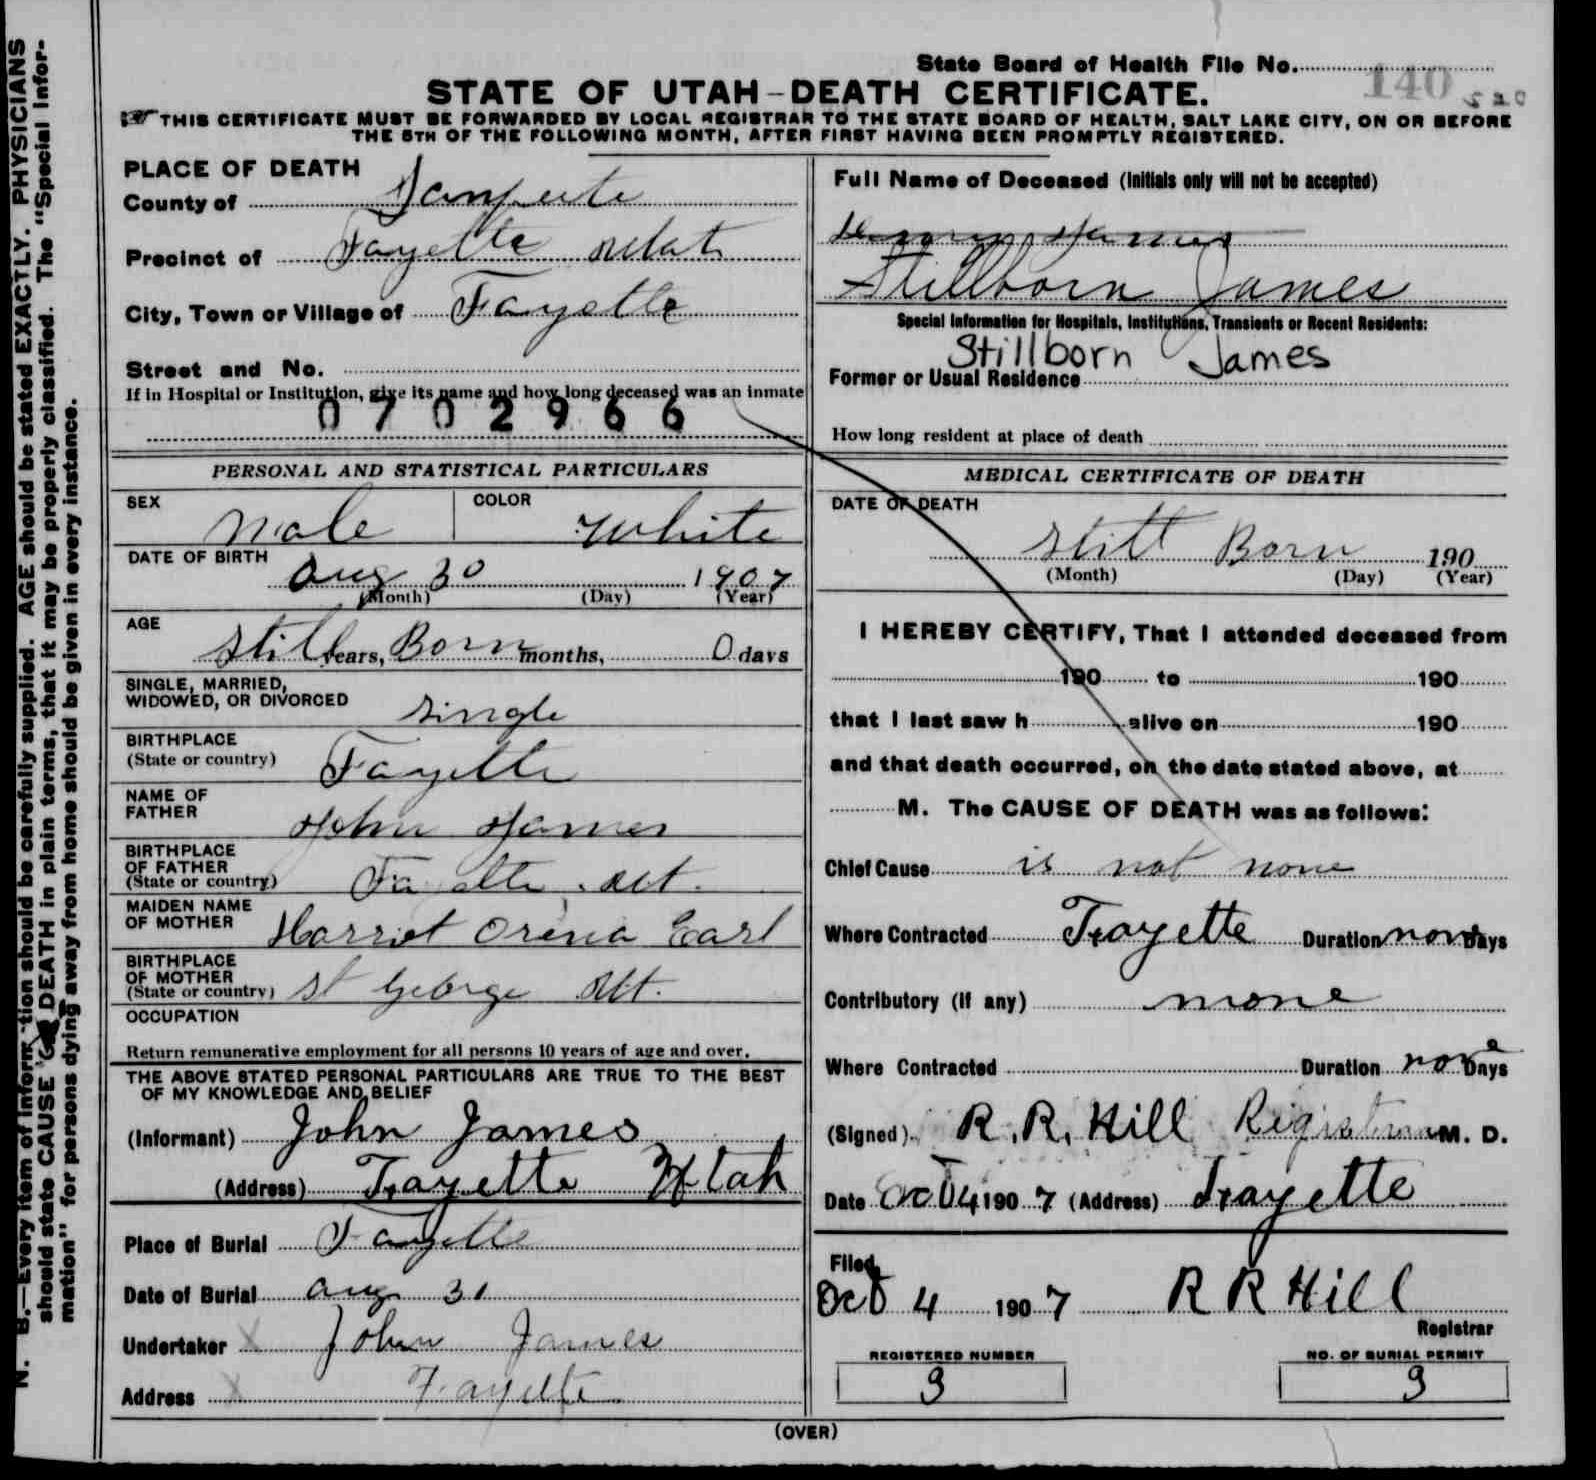 State Board of Health File No. 140
STATE OF UTAH-DEATH CERTIFICATE.
THIS CERTIFICATE MUST BE FORWARDED BY LOCAL REGISTRAR TO THE STATE BOARD OF HEALTH, SALT LAKE CITY, ON OR BEFORE
THE 5TH OF THE FOLLOWING MONTH, AFTER FIRST HAVING BEEN PROMPTLY REGISTERED.
PLACE OF DEATH
County of Sanpete
Precinct of Fayette Utah
City, Town or Village of Fayette
Street and No.
If in Hospital or Institution, give its name and how long deceased was an inmate
0702966
PERSONAL AND STATISTICAL PARTICULARS
SEX Male COLOR White
DATE OF BIRTH
Aug 30 1907
(Month) (Day) (Year)
AGE
Still years, Born months, 0 days
SINGLE, MARRIED,
WIDOWED, OR DIVORCED single
BIRTHPLACE
(State or country) Fayette
NAME OF
FATHER John James
BIRTHPLACE
OF FATHER
(State or country) Fayette, Ut.
MAIDEN NAME
OF MOTHER Harriet Orena Earl
BIRTHPLACE
OF MOTHER
(State or country) St George Ut.
OCCUPATION
Return remunerative employment for all persons 10 years of age and over.
THE ABOVE STATED PERSONAL PARTICULARS ARE TRUE TO THE BEST
OF MY KNOWLEDGE AND BELIEF
(Informant) John James
(Address) Fayette Utah
Place of Burial Fayette
Date of Burial aug 31
Undertaker X John James
Address X Fayette
Full Name of Deceased (Initials only will not be accepted)
James
Stillborn James
Special Information for Hospitals, Institutions, Transients or Recent Residents:
Stillborn James
Former or Usual Residence
How long resident at place of death
MEDICAL CERTIFICATE OF DEATH
DATE OF DEATH
Still Born 190
(Month) (Day) (Year)
I HEREBY CERTIFY, That I attended deceased from
190 to 190
that I last saw h alive on 190
and that death occurred, on the date stated above, at
M. The CAUSE OF DEATH was as follows:
Chief Cause is not none
Where Contracted Frayette Duration none Days
Contributory (if any) none
Where Contracted Duration none Days
(Signed) R. R. Hill Registrar M. D.
Date Oct 4 1907 (Address) Frayette
Filed
Oct 4 1907 R R Hill
Registrar
REGISTERED NUMBER NO. OF BURIAL PERMIT
9 9
(OVER)
N. B.—Every item of information should be carefully supplied. AGE should be stated EXACTLY. PHYSICIANS
should state CAUSE OF DEATH in plain terms, that it may be properly classified. The "Special Infor-
mation" for persons dying away from home should be given in every instance.